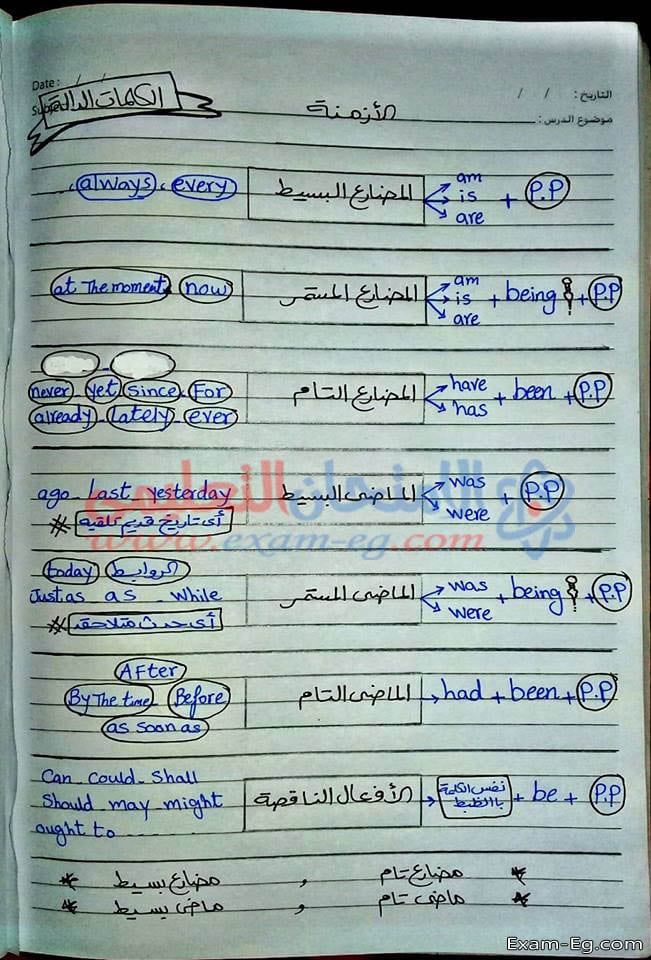 Date : / / التاريخ : / /
Subject موضوع الدرس :
الكلمات الدالة
الأزمنة
always, every المضارع البسيط am is are + P.P
at The moment now المضارع المستمر am is are + being + P.P
never - yet - since - For
already - Lately - ever المضارع التام have has + been + P.P
ago - Last - yesterday الماضى البسيط was were + P.P
# أى تاريخ قديم تلقيه
الامتحان التعليمى
www.exam-eg.com
today الروابط
Just as as - while الماضى المستمر was were + being + P.P
# أى حدث متلاحق
AFter
By The time Before الماضى التام had + been + P.P
as soon as
Can - could - Shall
Should - may - might الأفعال الناقصة نفس الكلمة باالظبط + be + P.P
ought to
* مضارع تام , مضارع بسيط *
* ماضى تام , ماضى بسيط *
Exam-Eg.com